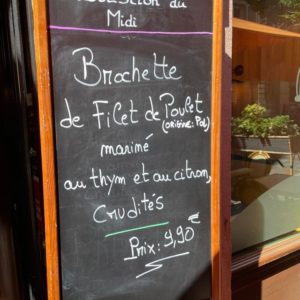 Midi
Brochette
de Filet de Poulet
(origine: Pol)
mariné
au thym et au citron,
crudités
Prix: 9,90 €